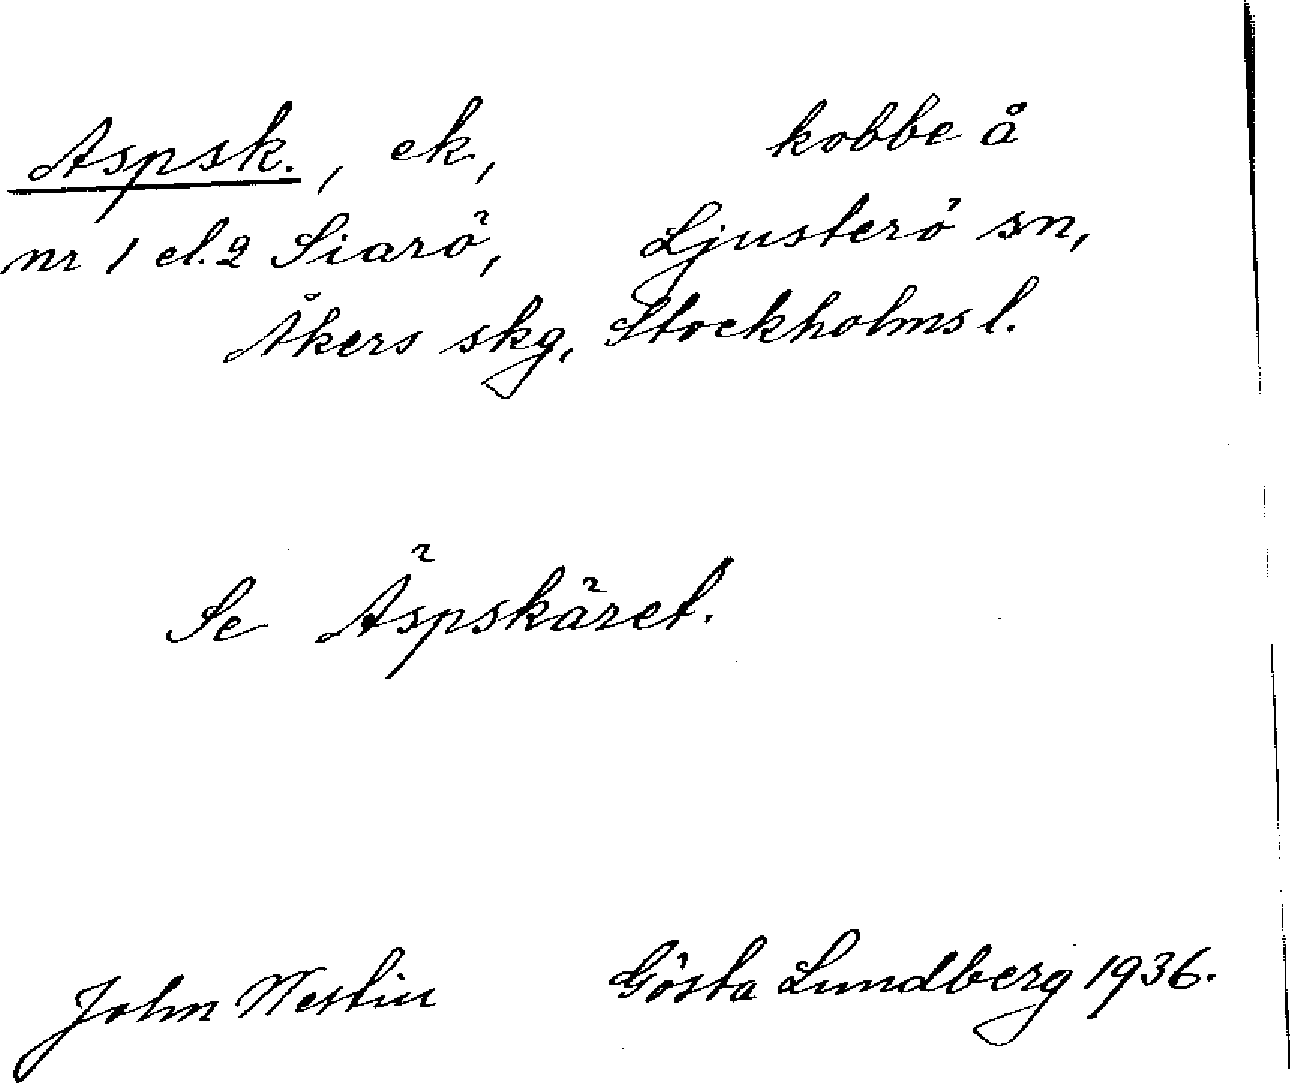 Aspsk., ek, kobbe å
nr 1 el. 2 Siarö, Ljusterö sn,
Åkers skg, Stockholms l.
Se Äspskäret.
John Westin Gösta Lundberg 1936.